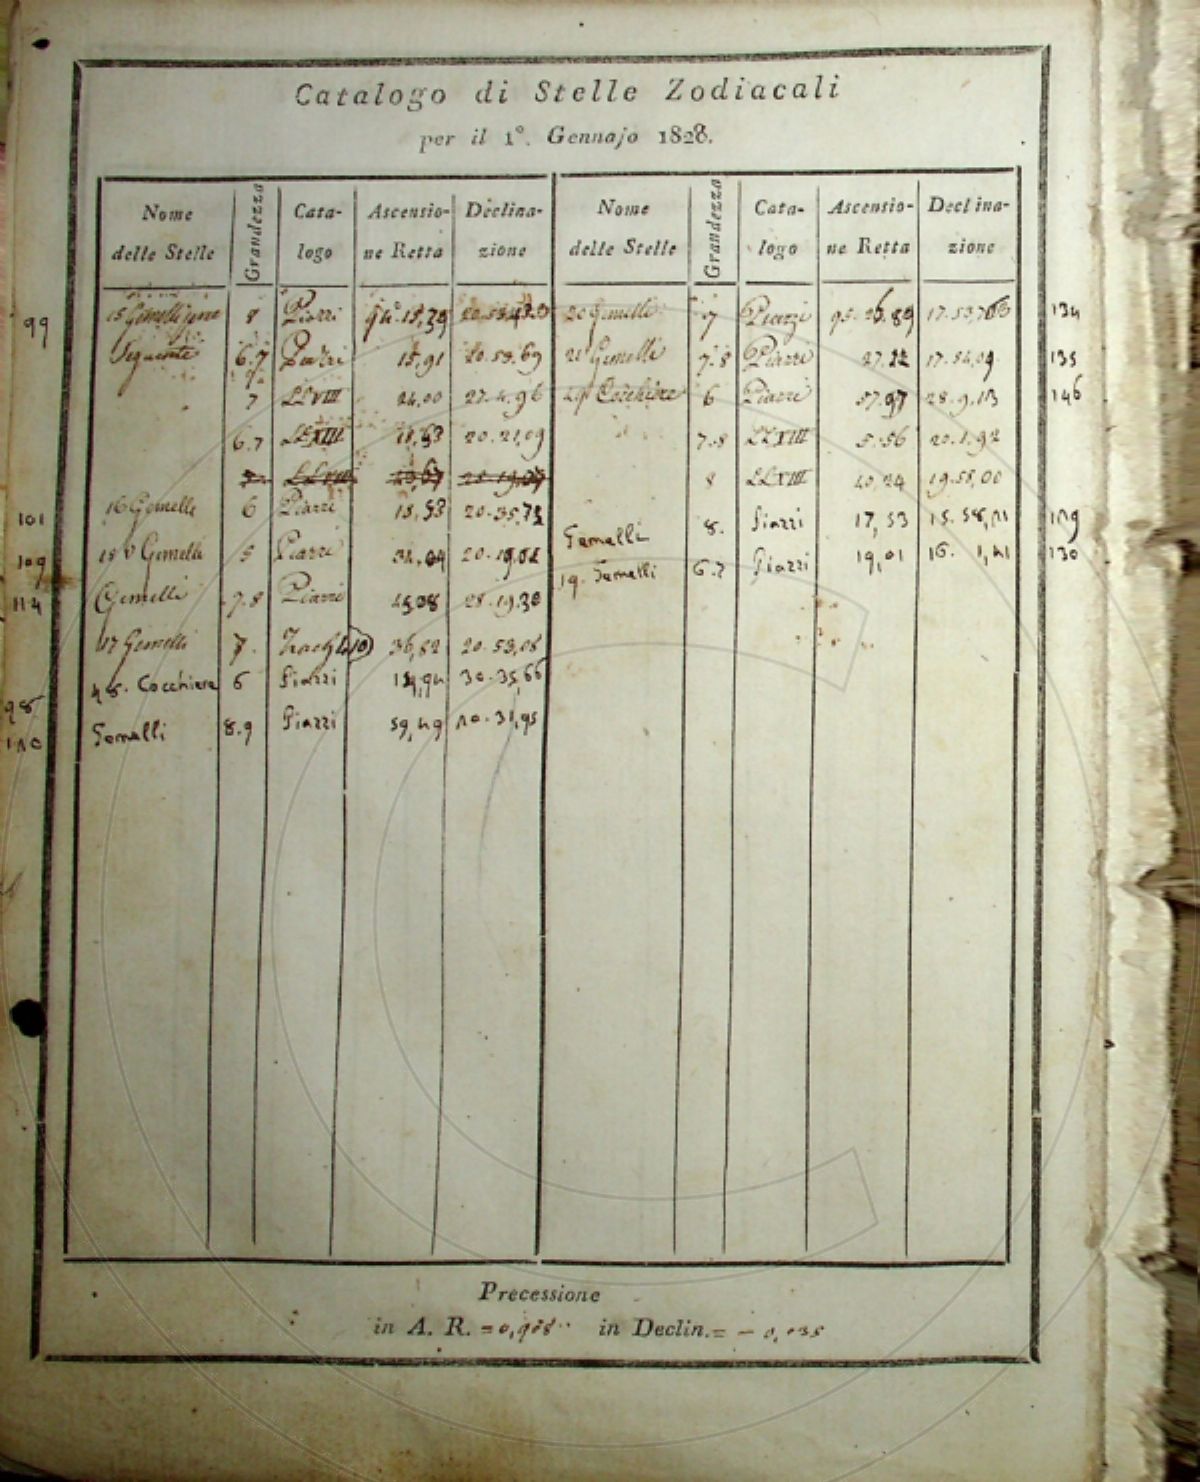 Catalogo di Stelle Zodiacali
per il 1°. Gennajo 1828.
Nome delle Stelle Grandezza Cata-logo Ascensio-ne Retta Declina-zione Nome delle Stelle Grandezza Cata-logo Ascensio-ne Retta Declina-zione
99 15 Gemelli 8 Piazzi 20 Gemelli 7 Piazzi 17.53,766 134
Seguente 6.7 Piazzi 15,91 20.53,69 21 Gemelli 7.8 Piazzi 27.22 17.54,09 135
7 LLVIII 24,00 27.4,96 Cocchiere 6 Piazzi 57.97 28.9,13 146
6.7 LLXIII 18,63 20.21,09 7.8 LLXIII 5.56 20.1,92
8 LLXIII 40,24 19.58,00
101 16 Gemelli 6 Piazzi 18,53 20.35,72 Gemelli 8. Piazzi 17,53 15.58,11 129
109 18 Gemelli 5 Piazzi 20.19,02 19. Gemelli 6.7 Piazzi 19,01 16. 1,41 130
114 Gemelli 7.8 Piazzi 45,08 28.19,30
17 Gemelli 7. 36,82 20.53,08
98 48. Cocchiere 6 Piazzi 30.35,66
110 Gemelli 8.9 Piazzi 59,49 10.31,95
Precessione
in A. R. = 0,988 in Declin. = - 0,035